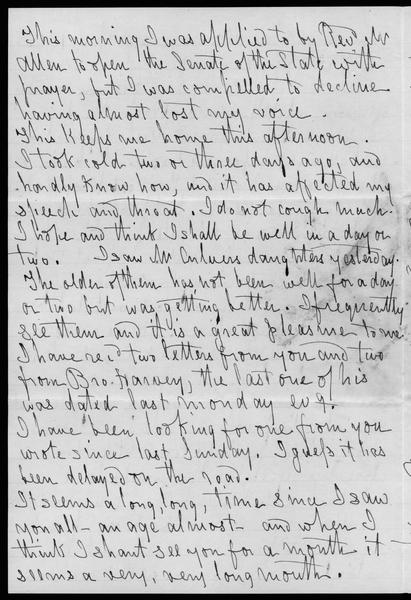 This morning I was applied to by Rev. Mr
Allen to open the Senate of the State with
prayer, but I was compelled to decline
having almost lost my voice.
This keeps me home this afternoon.
I took cold two or three days ago, and
hardly know how, and it has affected my
speech and throat. I do not cough much.
I hope and think I shall be well in a day or
two. I saw Mr Culvers daughters yesterday.
The older of them has not been well for a day
or two but was getting better. I frequently
see them and it is a great pleasure to me.
I have rec'd two letters from you and two
from Bro. Harvey, the last one of his
was dated last Monday evg.
I have been looking for one from you
wrote since last Sunday. I guess it has
been delayed on the road.
It seems a long, long, time since I saw
you all - an age almost - and when I
think I shant see you for a month it
seems a very, very long month.